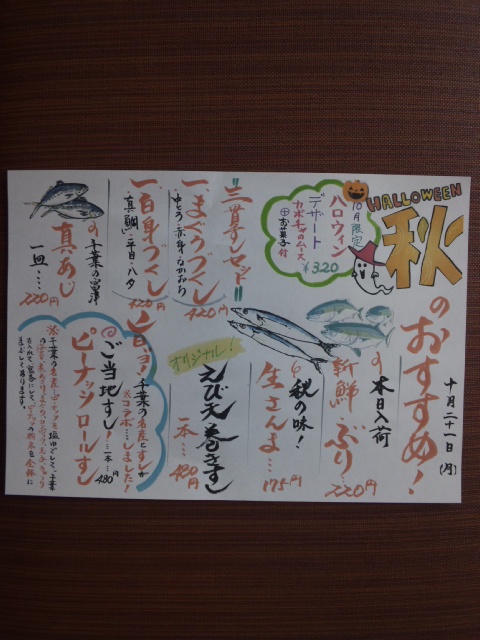 HALLOWEEN
秋
のおすすめ!
十月二十一日(月)
10月限定
ハロウィン
デザート
カボチャのムース
⊕お菓子付
¥320
本日入荷
新鮮ぶり…
220円
秋の味!
生さんま…
175円
オリジナル!
えび天巻きすし
一本…480円
三貫ずしセット
一、まぐろづくし
中とろ・赤身・なかおち
420円
一、白身づくし
真鯛・平目・八タ
420円
千葉の富津の
真あじ
一皿…220円
千葉の名産とすしが
コラボ…しました!
ご当地すし!
一本…480円
ピーナッツロールすし
※千葉の名産、ピーナッツを塩ゆでして、千葉
まぶしてあります。